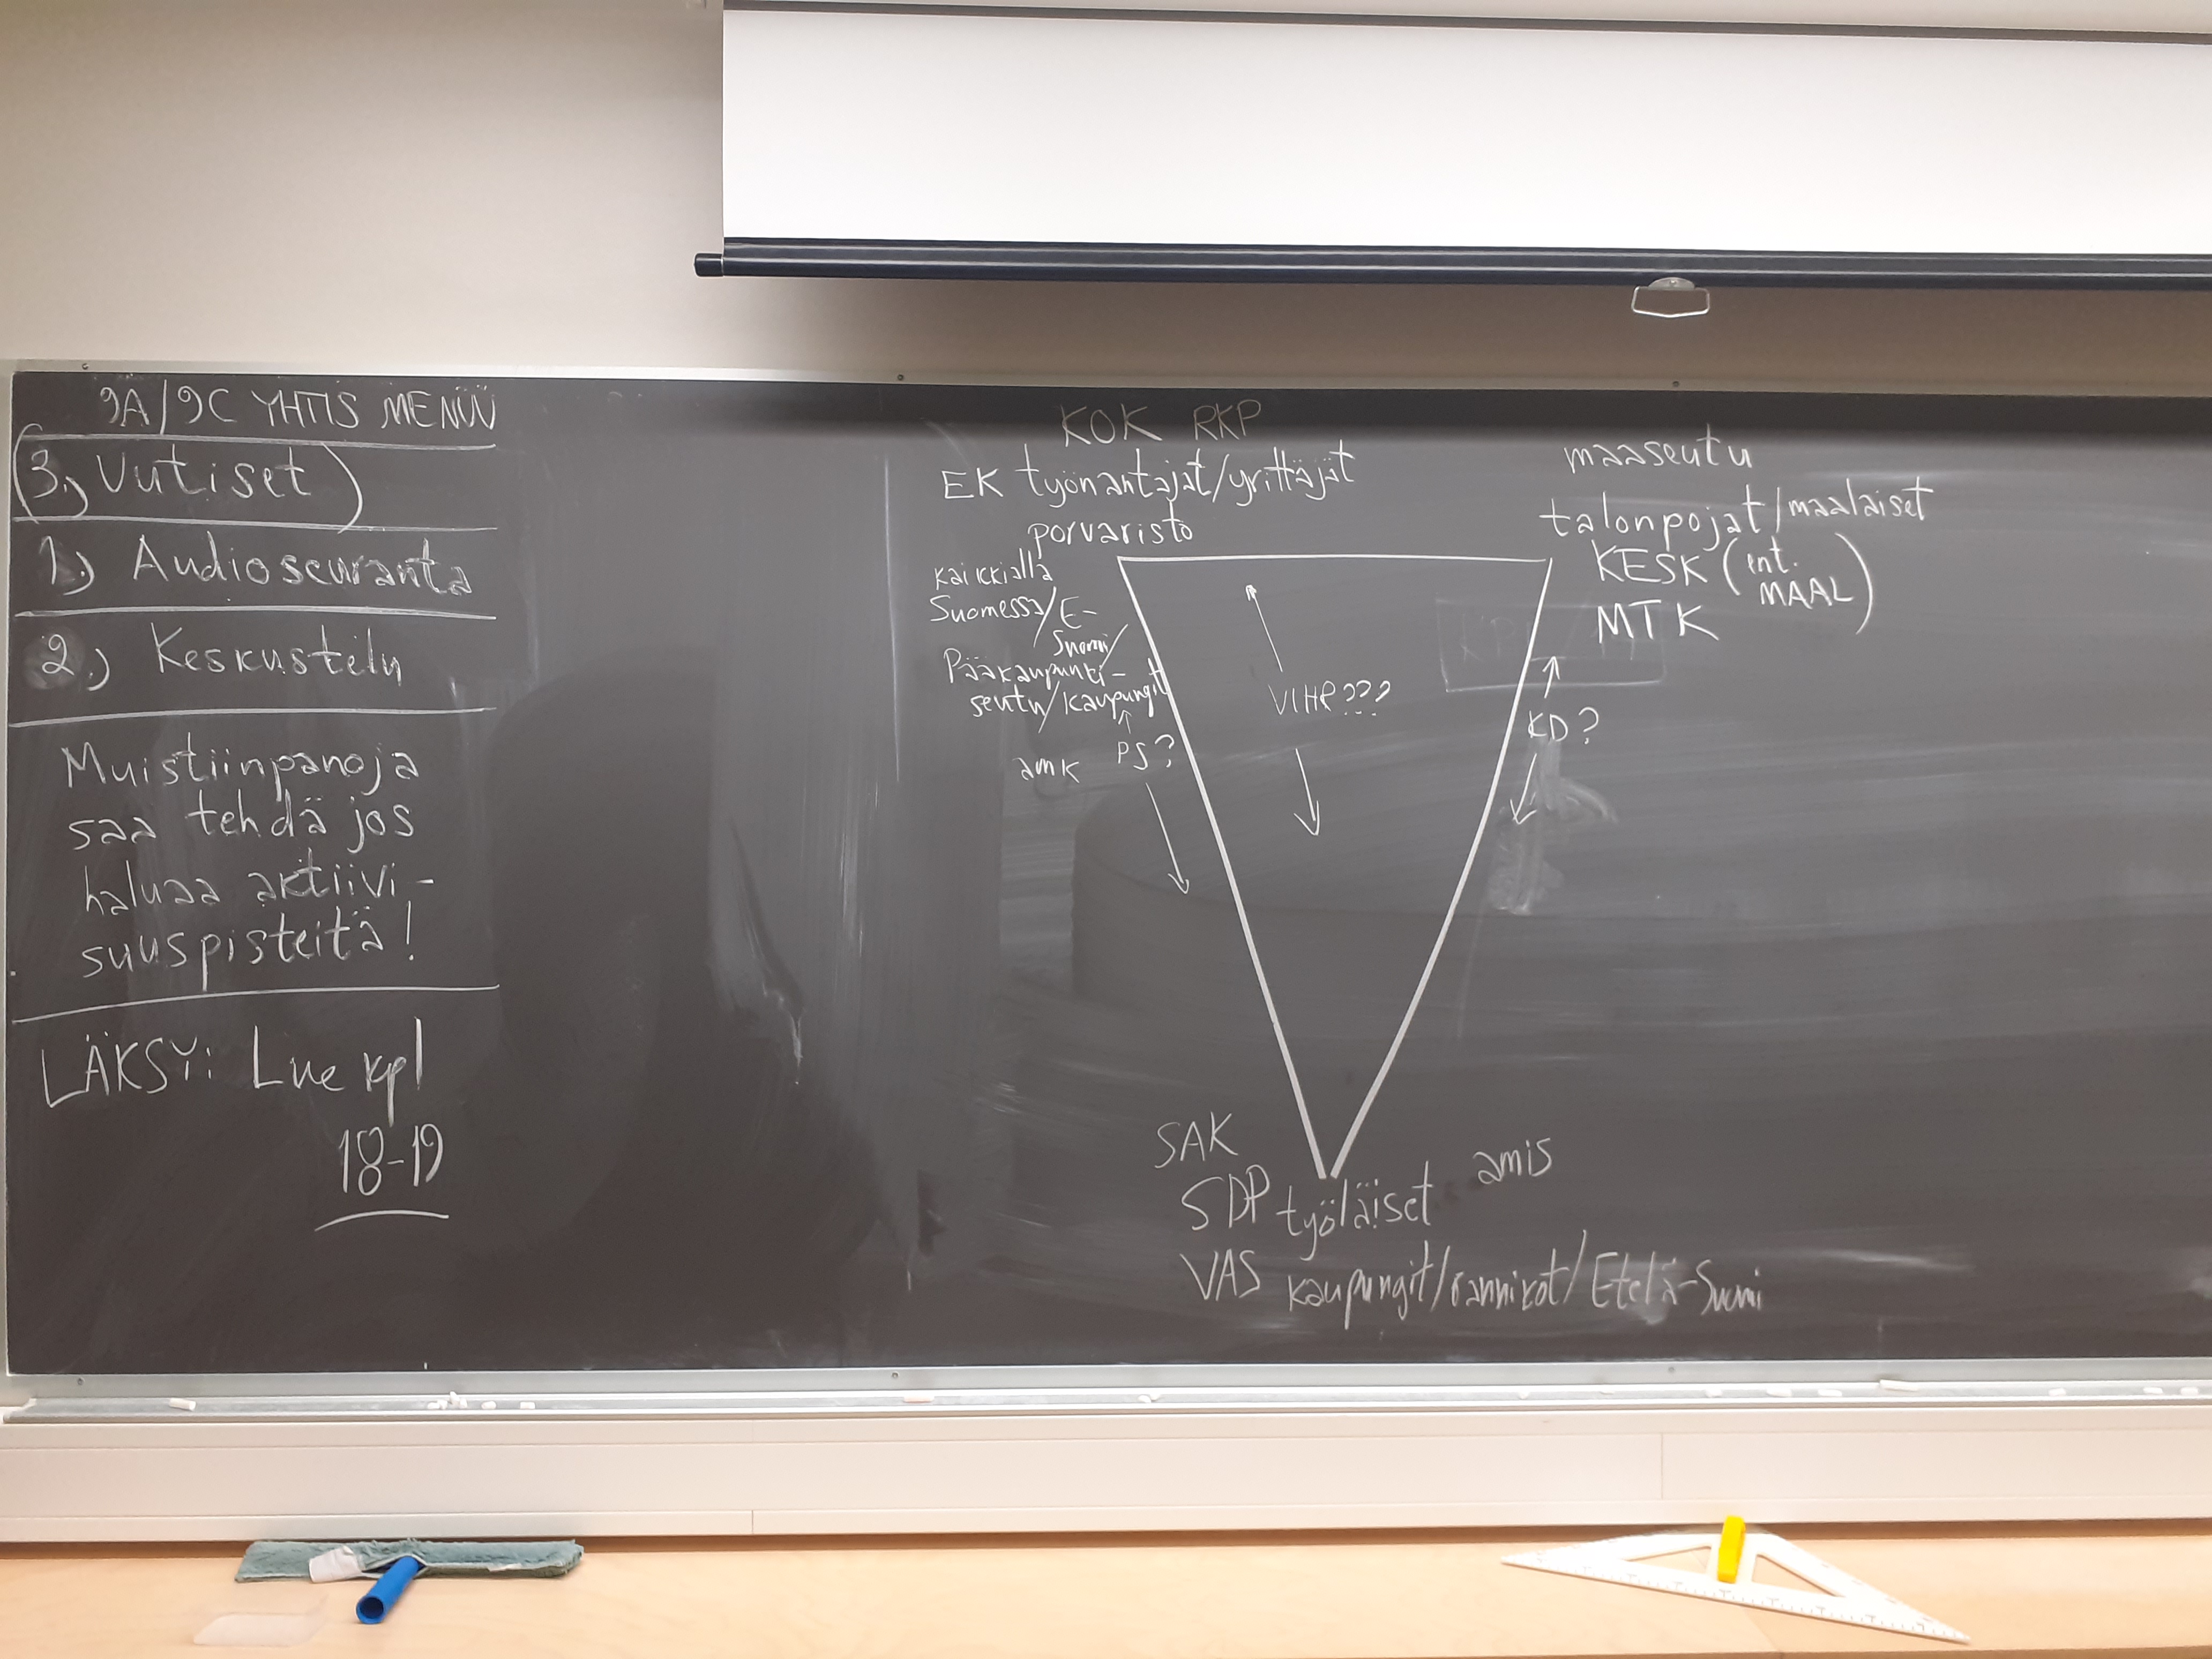 9A/9C YHTIS MENUU
(3.) Uutiset)
1.) Audioseuranta
2.) Keskustelu
Muistiinpanoja
saa tehdä jos
haluaa aktiivi-
suuspisteitä!
LÄKSY: Lue kpl
18-19
KOK RKP
EK työnantajat/yrittäjät
porvaristo
kaikkialla
Suomessa/E-
Suomi/
Pääkaupunki-
seutu/kaupungit
amk PS?
VIHR???
maaseutu
talonpojat/maalaiset
KESK (ent.
MAAL)
MTK
KD?
SAK
SDP työläiset amis
VAS kaupungit/rannikot/Etelä-Suomi